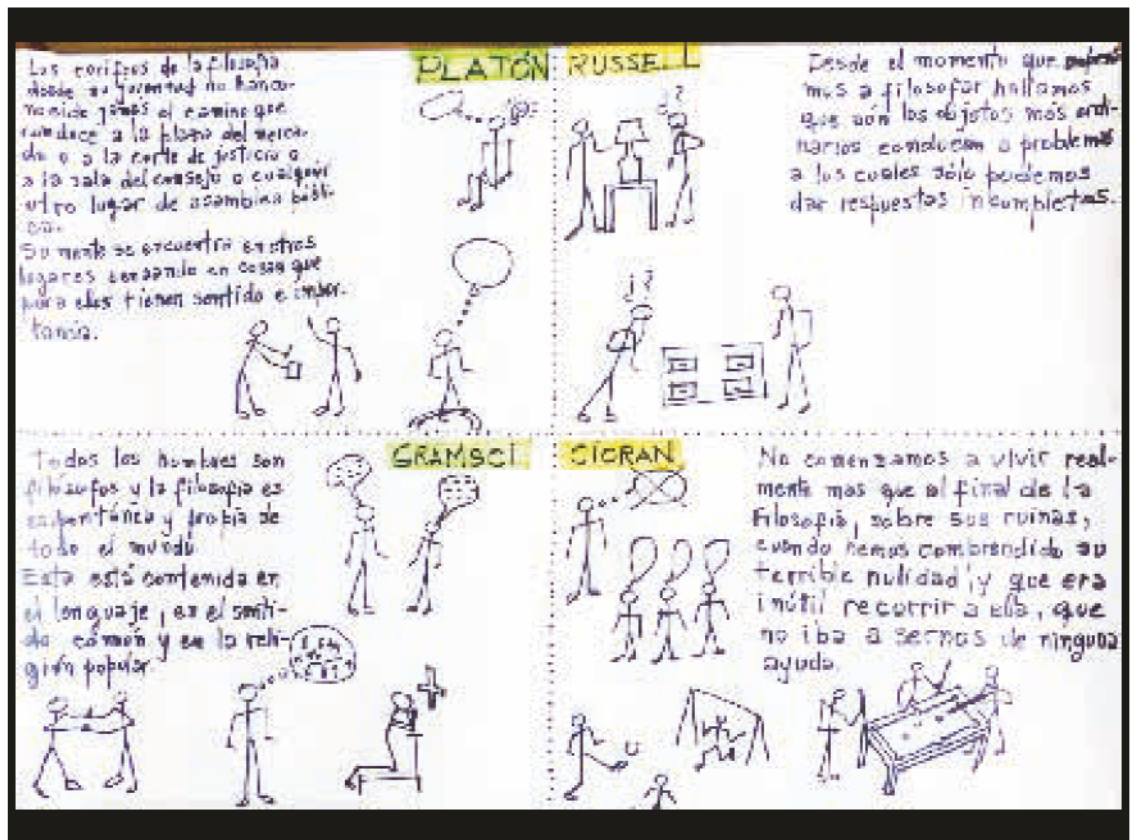 PLATÓN
Los corifeos de la filosofía
desde su juventud no han co-
nocido jamás el camino que
conduce a la plaza del merca-
do o a la corte de justicia o
a la sala del consejo o cualquier
otro lugar de asamblea públi-
ca.
Su mente se encuentra en otros
lugares pensando en cosas que
para ellos tienen sentido e impor-
tancia.
RUSSELL
Desde el momento que
mos a filosofar hallamos
que aún los objetos más ordi-
narios conducen a problemas
a los cuales sólo podemos
dar respuestas incompletas.
¿?
¿?
GRAMSCI
Todos los hombres son
filósofos y la filosofía es
espontánea y propia de
todo el mundo
Esta está contenida en
el lenguaje, en el senti-
do común y en la reli-
gión popular.
CIORAN
No comenzamos a vivir real-
mente mas que al final de la
Filosofía, sobre sus ruinas,
cuando hemos comprendido su
terrible nulidad, y que era
inútil recurrir a ella, que
no iba a sernos de ninguna
ayuda.